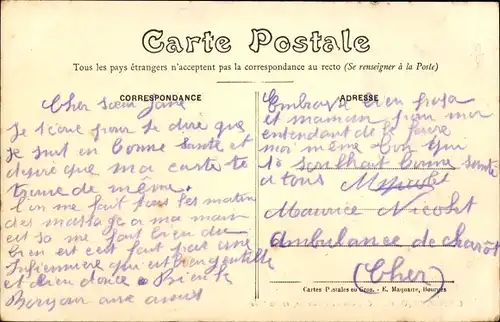 Carte Postale
Tous les pays étrangers n'acceptent pas la correspondance au recto (Se renseigner à la Poste)
CORRESPONDANCE
Cher sœur Jane
Je pour te dire que
je suit en bonne sante et
desire que ma carte te
trouve de même.
l'on me fait tous les matin
des massage a ma main
et sa me fait bien du
bien est cest fait par une
Infiermière qui est bien gentille
et bien douce
Bonjour aux amis
ADRESSE
Embrasse bien papa
et maman pour moi
entendant de le faire
moi même ton qui
souhait bonne sante
a tous
Maurice Nicolet
Ambulance de charôt
(Cher)
Cartes Postales en Gros. - E. Maquaire, Bourges